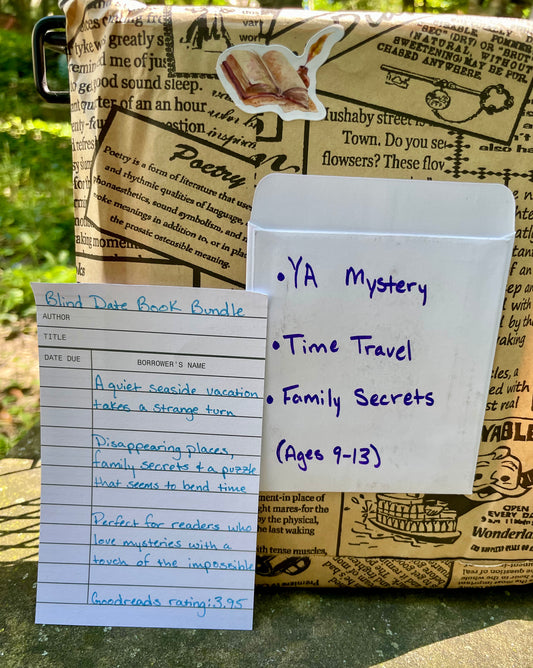 making
greatly s
tyke w
me of jus
good sound sleep.
an hour
estion
Poetry
Poetry is a form of literature that uses
and rhythmic qualities of language,
phonaesthetics, sound symbolism, and
meanings in addition to, or in place
the prosaic ostensible meaning.
(NATURAL, WITHOUT
SWEETENING) MAY BE PUR
CHASED ANYWHERE.
lushaby street is
Town. Do you see
flowsers? These flov
also ha
• YA Mystery
• Time Travel
• Family Secrets
(Ages 9-13)
Blind Date Book Bundle
AUTHOR
TITLE
DATE DUE
BORROWER'S NAME
A quiet seaside vacation
takes a strange turn
Disappearing places,
family secrets & a puzzle
that seems to bend time
Perfect for readers who
love mysteries with a
touch of the impossible
Goodreads rating: 3.95
st real
YABLE
OPEN
EVERY DA
Wonderla
ment-in place of
ght mares-for the
by the physical,
he last waking
th tense muscles,